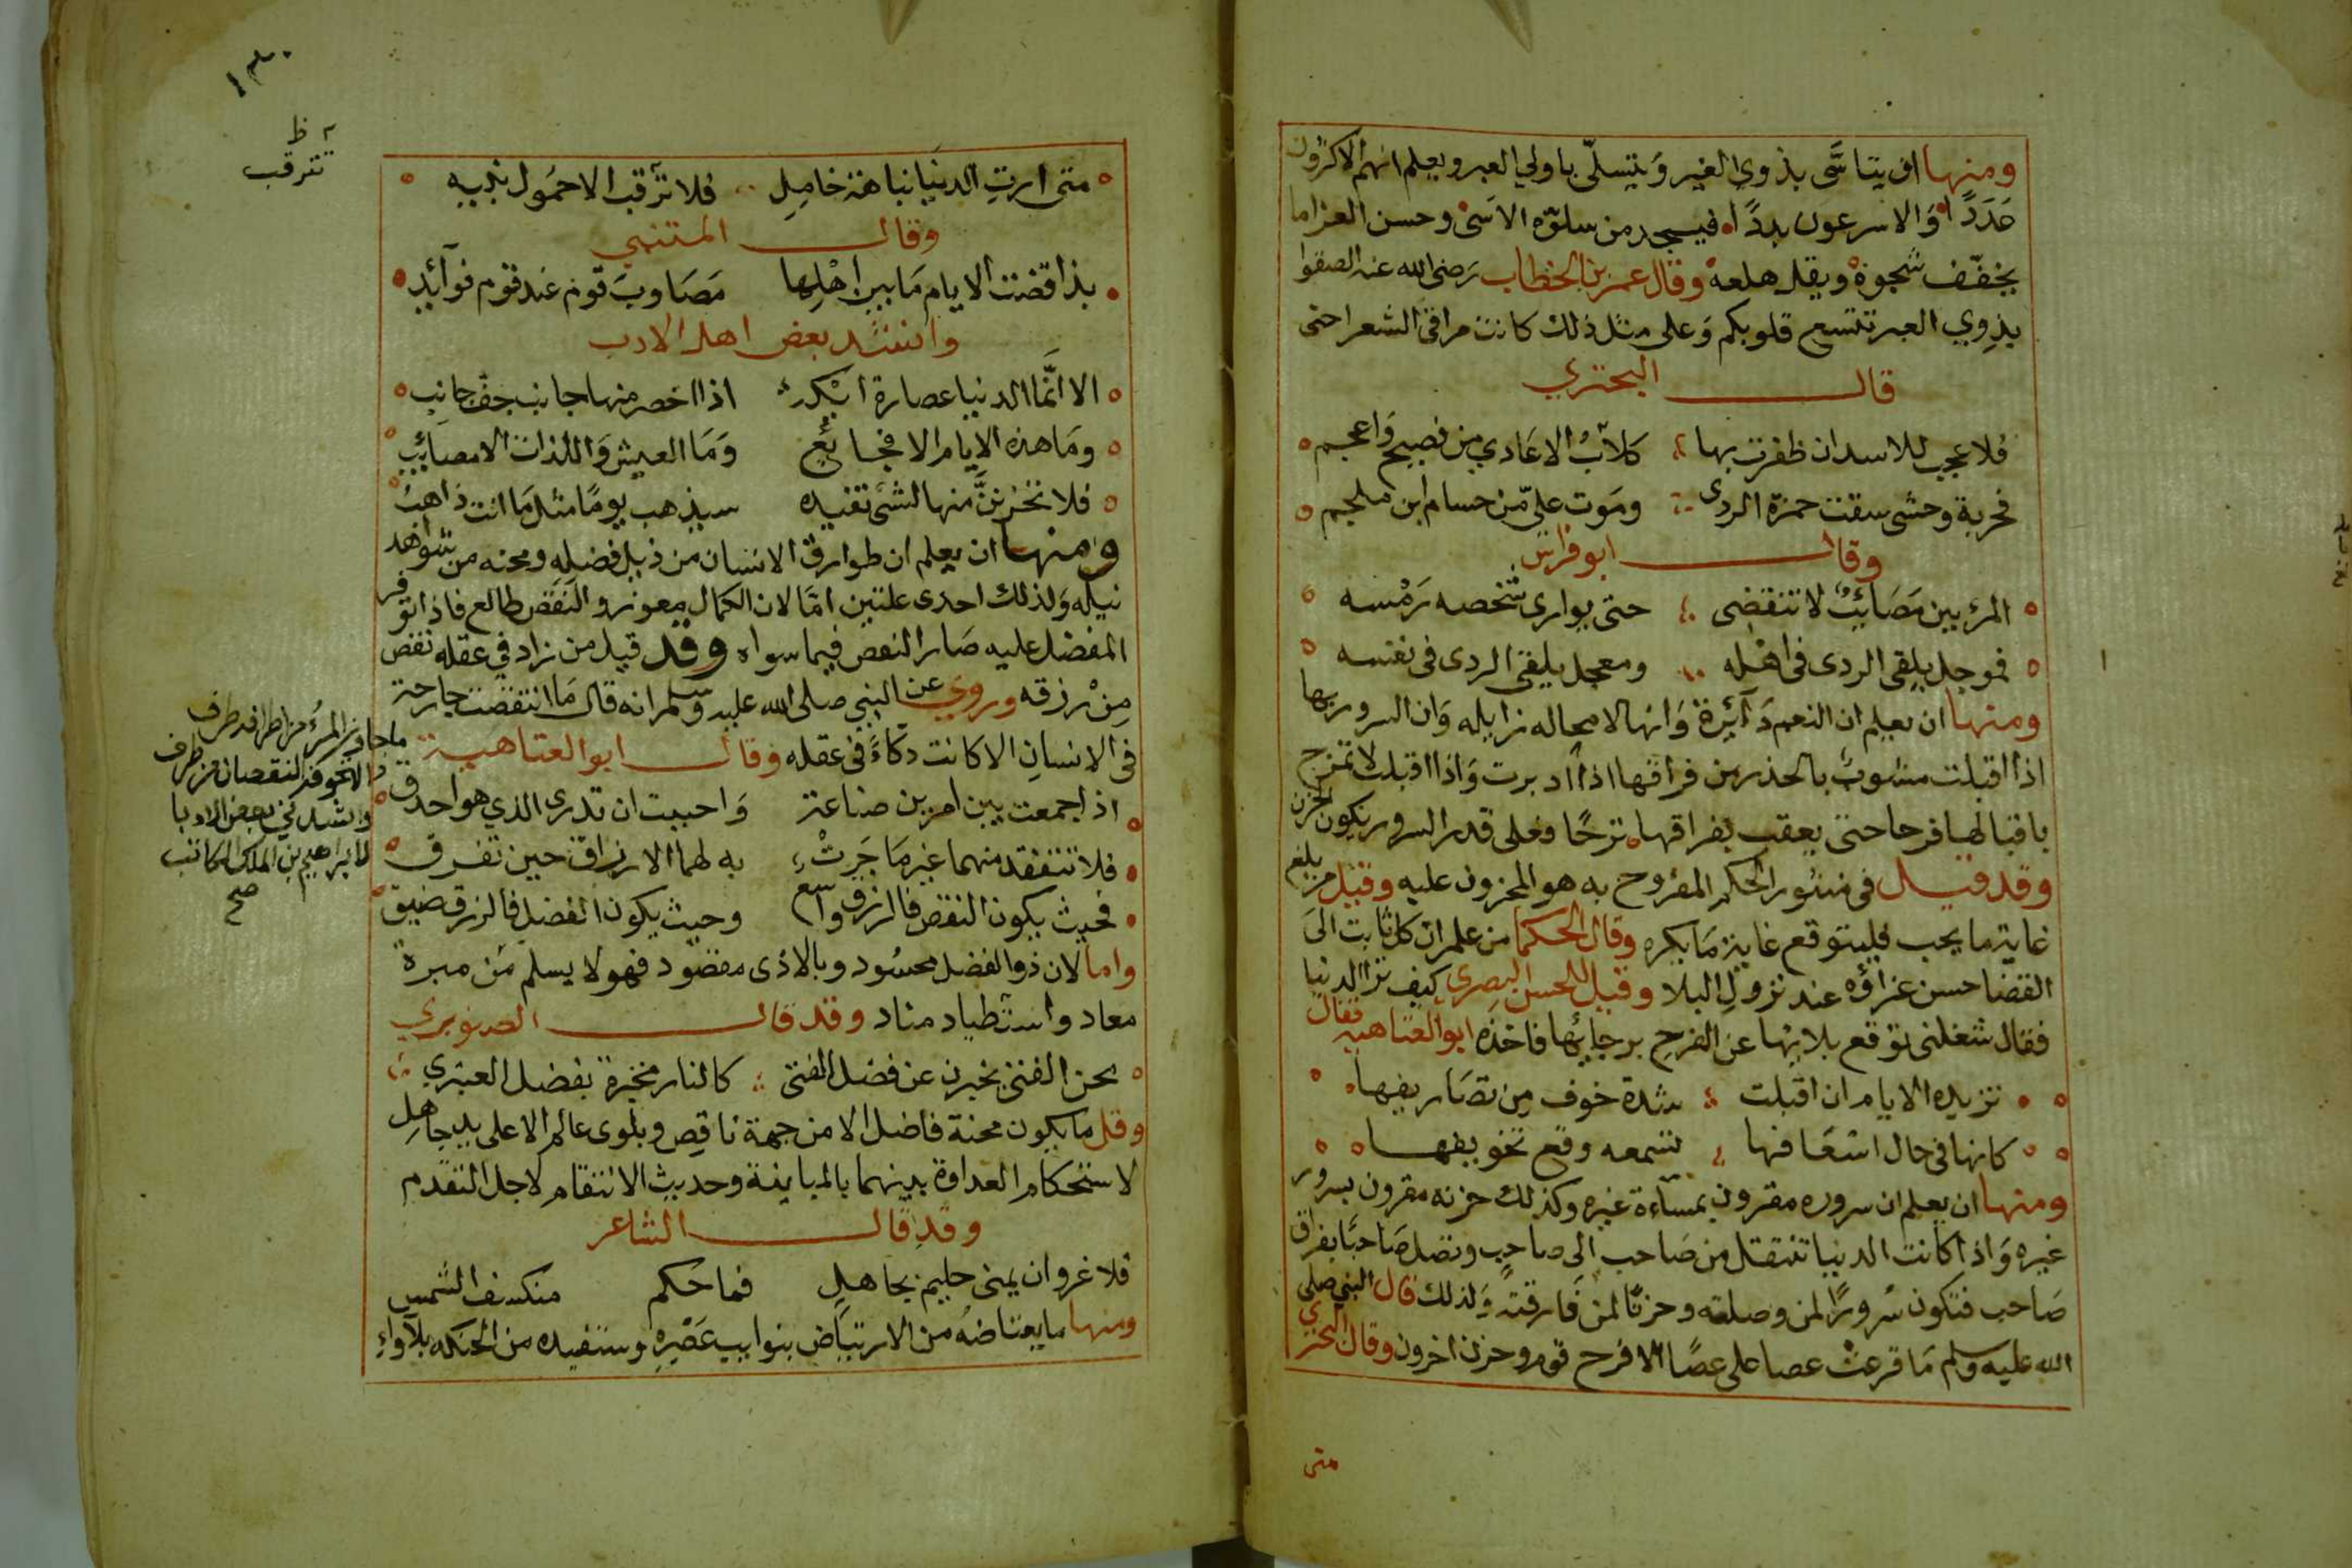 ومنها ان يتاسَّى بذوي الغير وَيتسلّى باولي العبر ويعلم انهم الاكثرون
عَدَدًا وَالاسرعون بددًا فيستجد من سلوّه الاسَى وحسن العزا ما
يخفّف شجوهْ ويقل هلعه وقال عمر بن الخطاب رَضى الله عنه الصقوا
بذوي العبر تتسع قلوبكم وَعلى مثل ذلك كانت مراقى الشعرا حتى
قال البحتري
فلا عجب للاسد ان ظفرت بها كلابُ الاعَادي من فصيح وَاعجم
فحربة وحشى سقت حمزة الردى ومَوت علىّ من حسام ابن ملجم
وقال ابو فراس
المرء بين مَصَائبٌ لا تنقضى حتى يوارى شخصه رَمْسه
فموجل يلقى الردى فى اهْله ومعجل يلقى الردى فى نفسه
ومنها ان يعلم ان النعم دَآئرة وَانها لا محاله زايله وَان السرور بها
اذا اقبلت مشوبٌ بالحذر من فراقها اذا ادبرت وَاذا اقبلت لا تفرح
باقبالها فرحا حتى يعقب بفراقها ترحًا وعلى قدر السرور يكون الحزن
وقد قيل فى منثور الحكم المفروح به هو المحزون عليه وقيل من بلغ
غاية ما يحب فليتوقع غاية مَا يكره وقال الحكما من علم ان كل نابت الىَ
القضا حسن عزاؤه عند نزول البلا وقيل للحسن البصرى كيف ترا الدنيا
فقال شغلنى توقع بلائها عن الفرح برجائها فاخذه ابو العتاهيه فقال
تزيده الايام ان اقبلت شدة خوف مِن تصَاريفها
كانها فى حال اسْعَافها تسمعه وقع تخويفها
ومنها ان يعلم ان سروره مقرون بمسآءة غيره وكذلك حزنه مقرون بسرور
غيره وَاذا كانت الدنيا تنتقل من صَاحب الى صاحب وتصل صَاحبًا بفراق
صَاحب فتكون سُرورًا لمن وصلته وحزنًا لمن فَارقته وَلذلك قال النبي صلى
الله عليه وسلم مَا قرعتْ عصا على عصًا الا فرح قوم وحزن اخرون وقال البحتري
متى
تترقب
متى ارتِ الدنيَا نباهة خامِلِ فلا ترقب الا خمُول نبيه
وقال المتنبي
بذا قضت الايام مَا بين اهْلِها مَصَاوبَ قوم عند قوم فوآئد
وانشد بعض اهل الادب
الا انَّما الدنيا عصارة ايْكة اذا اخصر منها جانب جف جانب
ومَا هذه الايام الا فجائع وَمَا العيش وَاللذات الا مصائب
فلا تحزننَّ منها لشئ تفيده سيذهب يومًا مثل مَا انت ذاهبُ
ومنها ان يعلم ان طوارق الانسان من ذيل فضله ومحنه من شواهد
نيله وَلذلك احدى علتين امّا لان الكمال معوز والنَقص طالع فاذا توفر
الفضل عليه صَار النقص فيما سواه وقد قيل من زاد في عقله نقص
مِنْ رزقه وروي عن النبي صلى الله عليه وسلم انه قال مَا انتقصت جارحة
فى الانسانِ الا كانت دكاءً فى عقله وقال ابو العتاهية
ما جاوز المرء من اطرافه طرف
الا تخوفه النقصان من طرف
وانشدني بعض الادبا
لابراهيم بن الملك الكاتب
صح
اذا جمعت بين امرين صناعة وَاحببت ان تدرى الذي هو احدق
فلا تتفقد منهما غير مَا جَرتْ به لهما الارزاق حين تفرق
فحيث يكون النقص فالرزق واسع وحيث يكون الفضل فالرزق ضيق
واما لان ذو الفضل محسُود وبالاذى مقصود فهو لا يسلم مَن مبرة
معاد واسْتطياد مناد وقد قال الصنوبري
محن الفتى يخبرن عن فضل الفتى كالنار مخبرة بفضل العنبرى
وقل ما يكون محنة فاضل الا من جهة ناقصٍ وبلوى عالم الا على يد جاهل
لاستحكام العداوة بينهما بالمباينة وحديث الانتقام لاجل التقدم
وقد قال الشاعر
فلا غرو ان يمنى حليم بجاهل فما حكم منكسف الشمس
ومنها ما يعتاضهُ من الارتياض بنوايب عَصْرِه وستفيده من الحنكه بلآواءِ